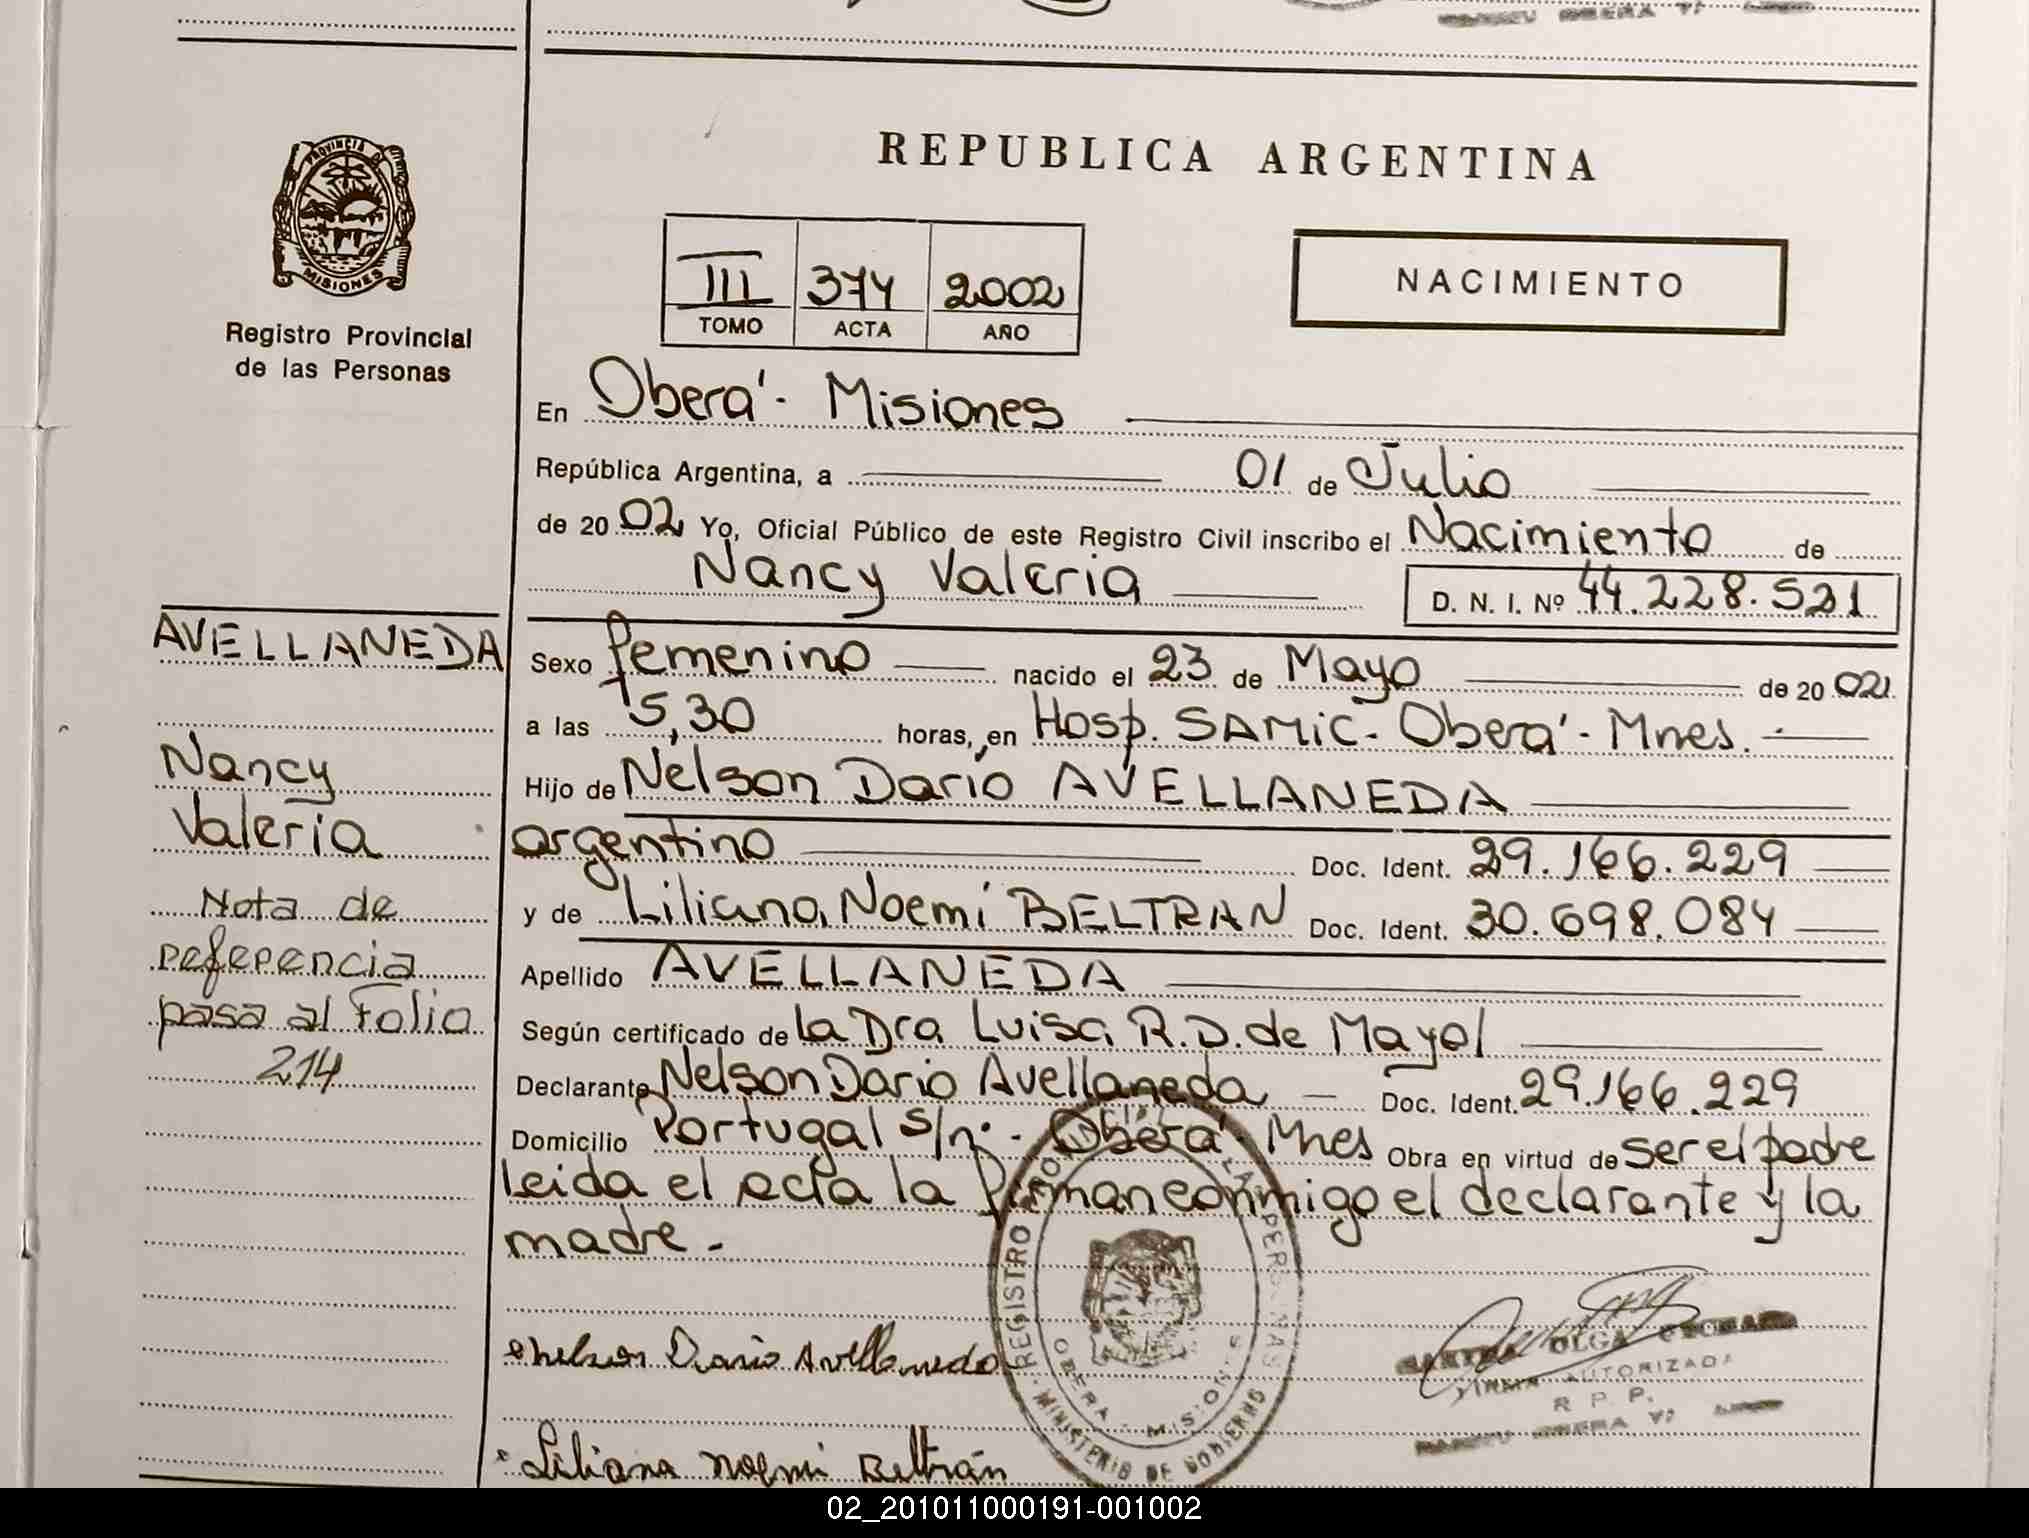 REPUBLICA ARGENTINA
PROVINCIA D
MISIONES
Registro Provincial
de las Personas
III 374 2002
TOMO ACTA AÑO
NACIMIENTO
En Oberá - Misiones
República Argentina, a 01 de Julio
de 2002 Yo, Oficial Público de este Registro Civil inscribo el Nacimiento de
Nancy Valeria D. N. I. Nº 44.228.521
AVELLANEDA
Nancy
Valeria
Nota de
referencia
pasa al Folio
214
Sexo femenino nacido el 23 de Mayo de 2002
a las 15,30 horas, en Hosp. SAMIC - Oberá - Mnes.
Hijo de Nelson Darío AVELLANEDA
argentino Doc. Ident. 29.166.229
y de Liliana Noemí BELTRAN Doc. Ident. 30.698.084
Apellido AVELLANEDA
Según certificado de la Dra Luisa R.D. de Mayol
Declarante Nelson Dario Avellaneda — Doc. Ident. 29.166.229
Domicilio Portugal s/nº - Oberá - Mnes Obra en virtud de ser el padre
Leida el acta la firman conmigo el declarante y la
madre -
Nelson Dario Avellaneda
Liliana Noemi Beltrán
REGISTRO LAS PERSONAS
OBERA - MISIONES
MINISTERIO DE GOBIERNO
OLGA
FIRMA AUTORIZADA
R. P. P.
OBERA
02_201011000191-001002